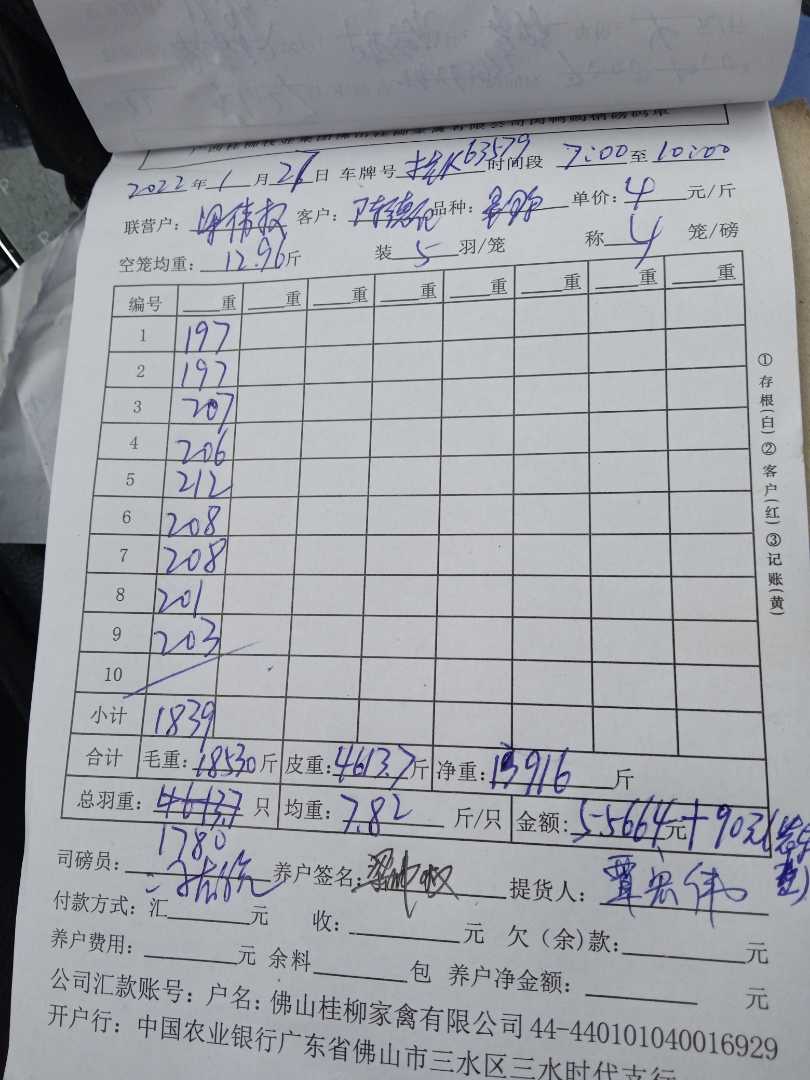 2022年1月27日 车牌号 K63579 时间段 7:00至10:00
联营户: 客户: 品种: 单价:4元/斤
空笼均重:12.96斤 装5羽/笼 称4笼/磅
编号 重 重 重 重 重 重 重 重
1 197
2 197
3 207
4 206
5 212
6 208
7 208
8 201
9 203
10
小计 1839
合计 毛重:18530斤 皮重:4613.7斤 净重:13916斤
总羽重:4613.7只 均重:7.82斤/只 金额:55664元+90元
1780
司磅员: 养户签名: 提货人:覃宏伟
付款方式:汇 元 收: 元 欠(余)款: 元
养户费用: 元 余料 包 养户净金额: 元
公司汇款账号:户名:佛山桂柳家禽有限公司44-440101040016929
开户行:中国农业银行广东省佛山市三水区三水时代支行
①存根(白)②客户(红)③记账(黄)